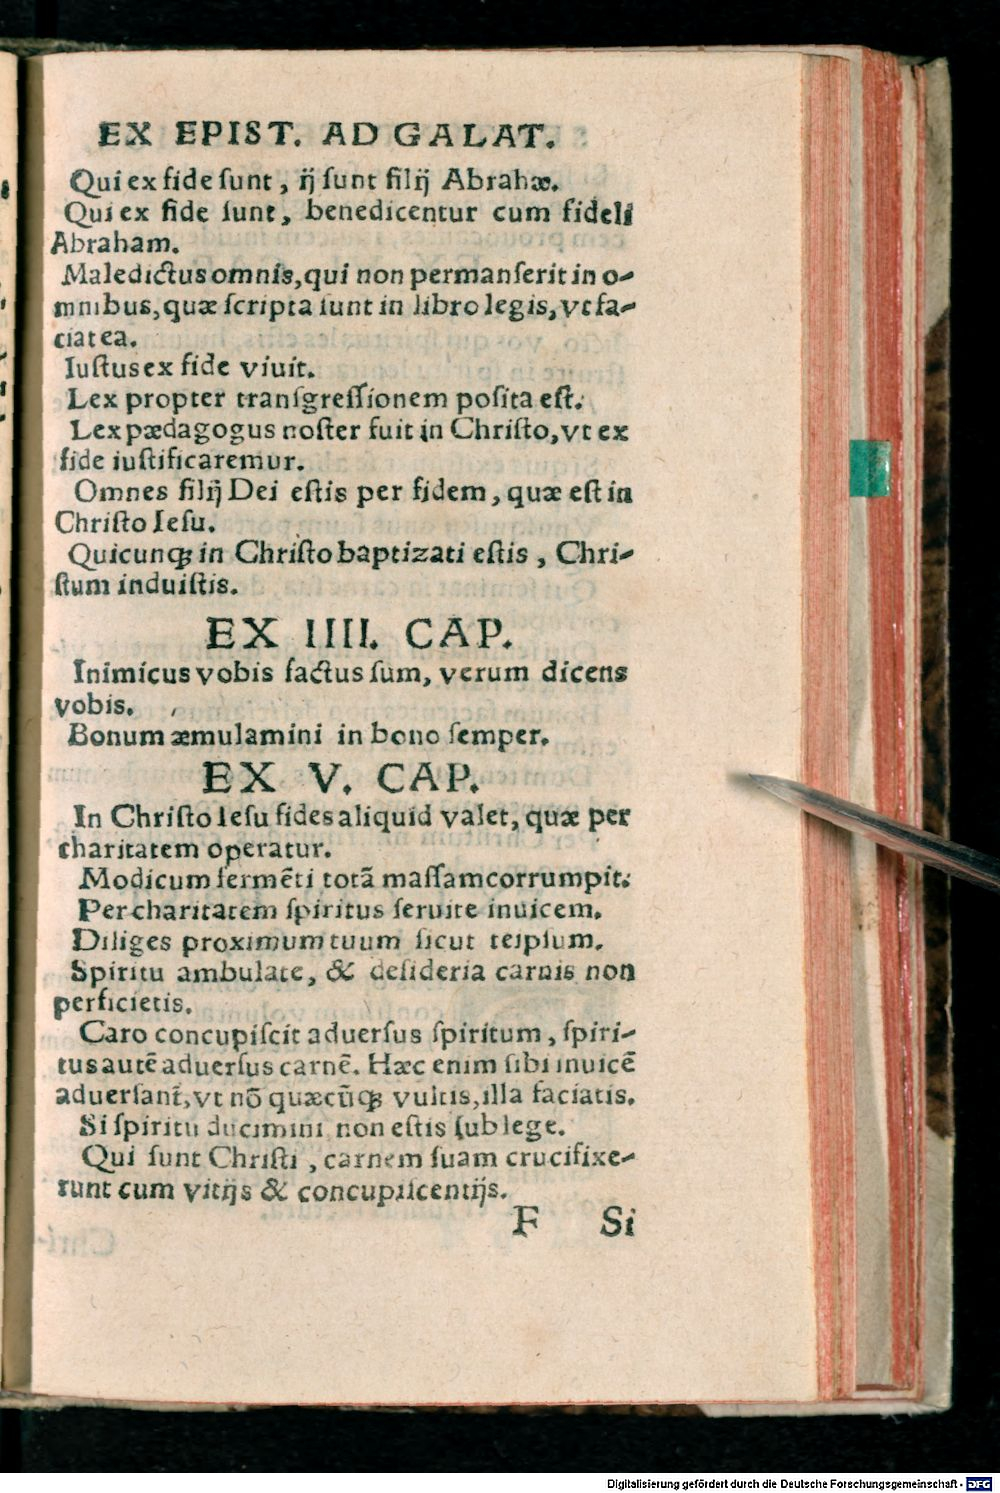 EX EPIST. AD GALAT.
Qui ex fide ſunt, ij ſunt filij Abrahæ.
Qui ex fide ſunt, benedicentur cum fideli
Abraham.
Maledictus omnis, qui non permanſerit in o-
mnibus, quæ ſcripta ſunt in libro legis, vt fa-
ciat ea.
Iuſtus ex fide viuit.
Lex propter tranſgreſſionem poſita eſt.
Lex pædagogus noſter fuit in Chriſto, vt ex
fide iuſtificaremur.
Omnes filij Dei eſtis per fidem, quæ eſt in
Chriſto Ieſu.
Quicunqꝫ in Chriſto baptizati eſtis, Chri-
ſtum induiſtis.
EX IIII. CAP.
Inimicus vobis factus ſum, verum dicens
vobis.
Bonum æmulamini in bono ſemper.
EX V. CAP.
In Chriſto Ieſu fides aliquid valet, quæ per
charitatem operatur.
Modicum fermẽti totã maſſam corrumpit.
Per charitatem ſpiritus ſeruite inuicem.
Diliges proximum tuum ſicut teipſum.
Spiritu ambulate, & deſideria carnis non
perficietis.
Caro concupiſcit aduerſus ſpiritum, ſpiri-
tus autẽ aduerſus carnẽ. Hæc enim ſibi inuicẽ
aduerſant᷑, vt nõ quæcũqꝫ vultis, illa faciatis.
Si ſpiritu ducimini non eſtis ſub lege.
Qui ſunt Chriſti, carnem ſuam crucifixe-
runt cum vitijs & concupiſcentijs.
F Si
Digitalisierung gefördert durch die Deutsche Forschungsgemeinschaft - DFG